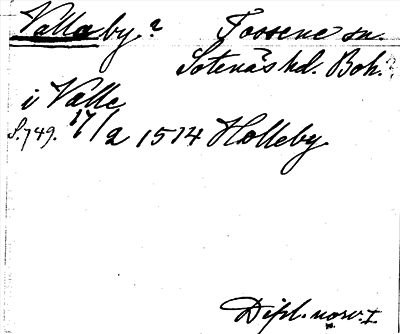 Vallaby? Tossene sn.
Sotenäs hd. Boh.
i Valle
S.749. 17/2 1514 Holleby
Dipl. norv. I